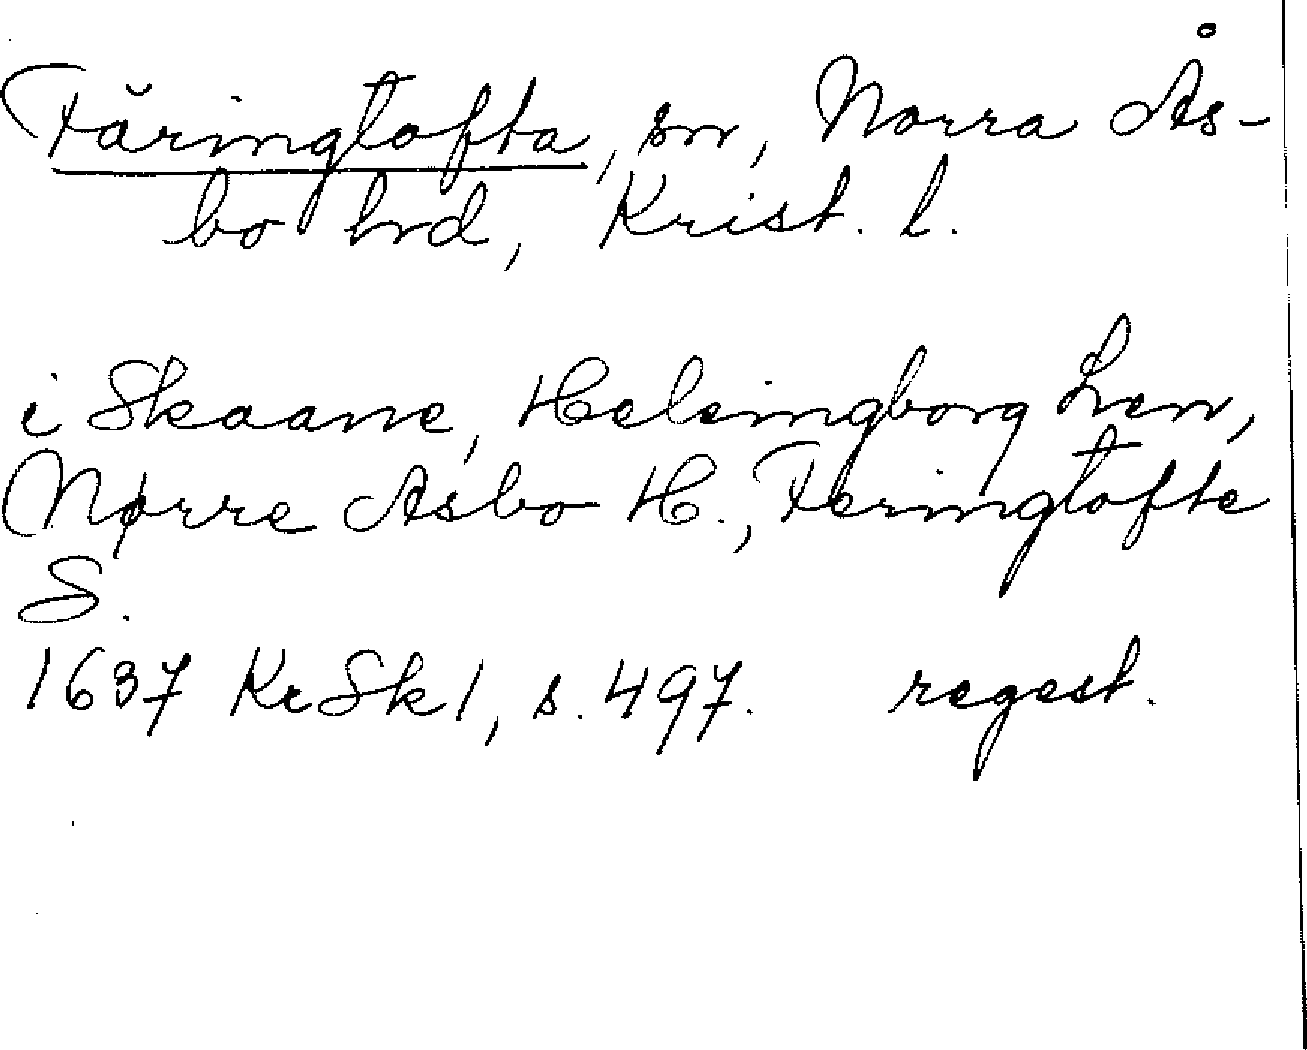 Färingtofta, sn, Norra Ås-
bo hrd, Krist. l.
i Skaane, Helsingborg Len,
Nørre Asbo H., Feringtofte
S.
1637 KrSk 1, s. 497. regest.